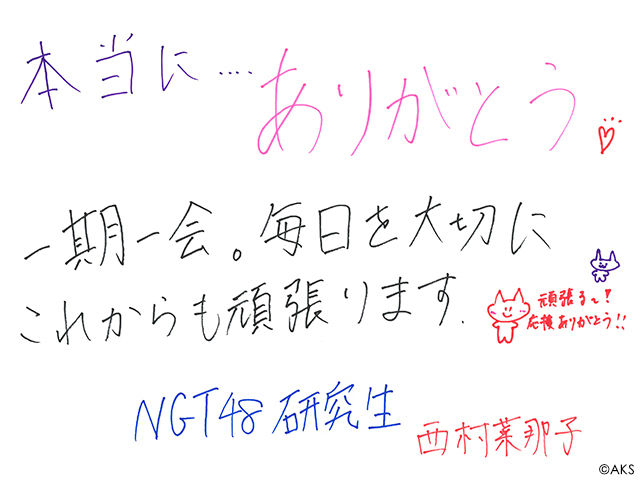 本当に‥‥
ありがとう
一期一会。毎日を大切に
これからも頑張ります.
頑張る〜!
応援ありがとう!!
NGT48 研究生
西村菜那子
©AKS